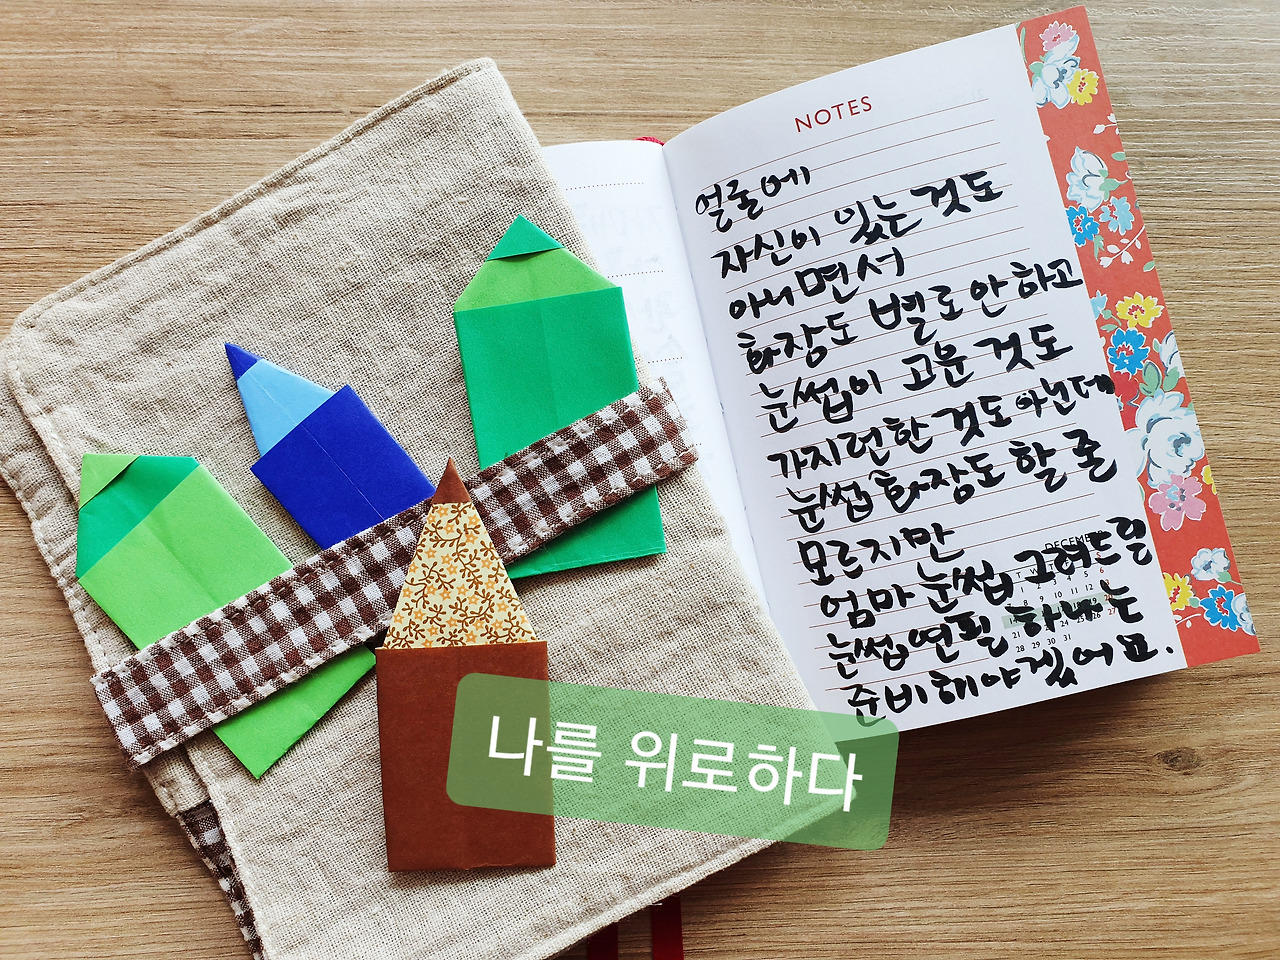 NOTES
얼굴에
자신이 있는 것도
아니면서
화장도 별로 안 하고
눈썹이 고운 것도
가지런한 것도 아닌데
눈썹 화장도 할 줄
모르지만
엄마 눈썹 그려드릴
눈썹 연필 하나는
준비해야겠어요.
DECEMBE
나를 위로하다